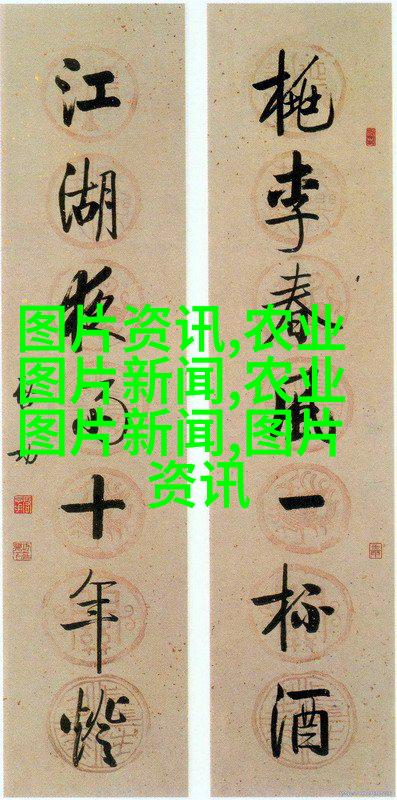 桃李春風一杯酒
江湖夜雨十年燈
图片资讯,农业
图片新闻,农业
图片新闻,图片
资讯